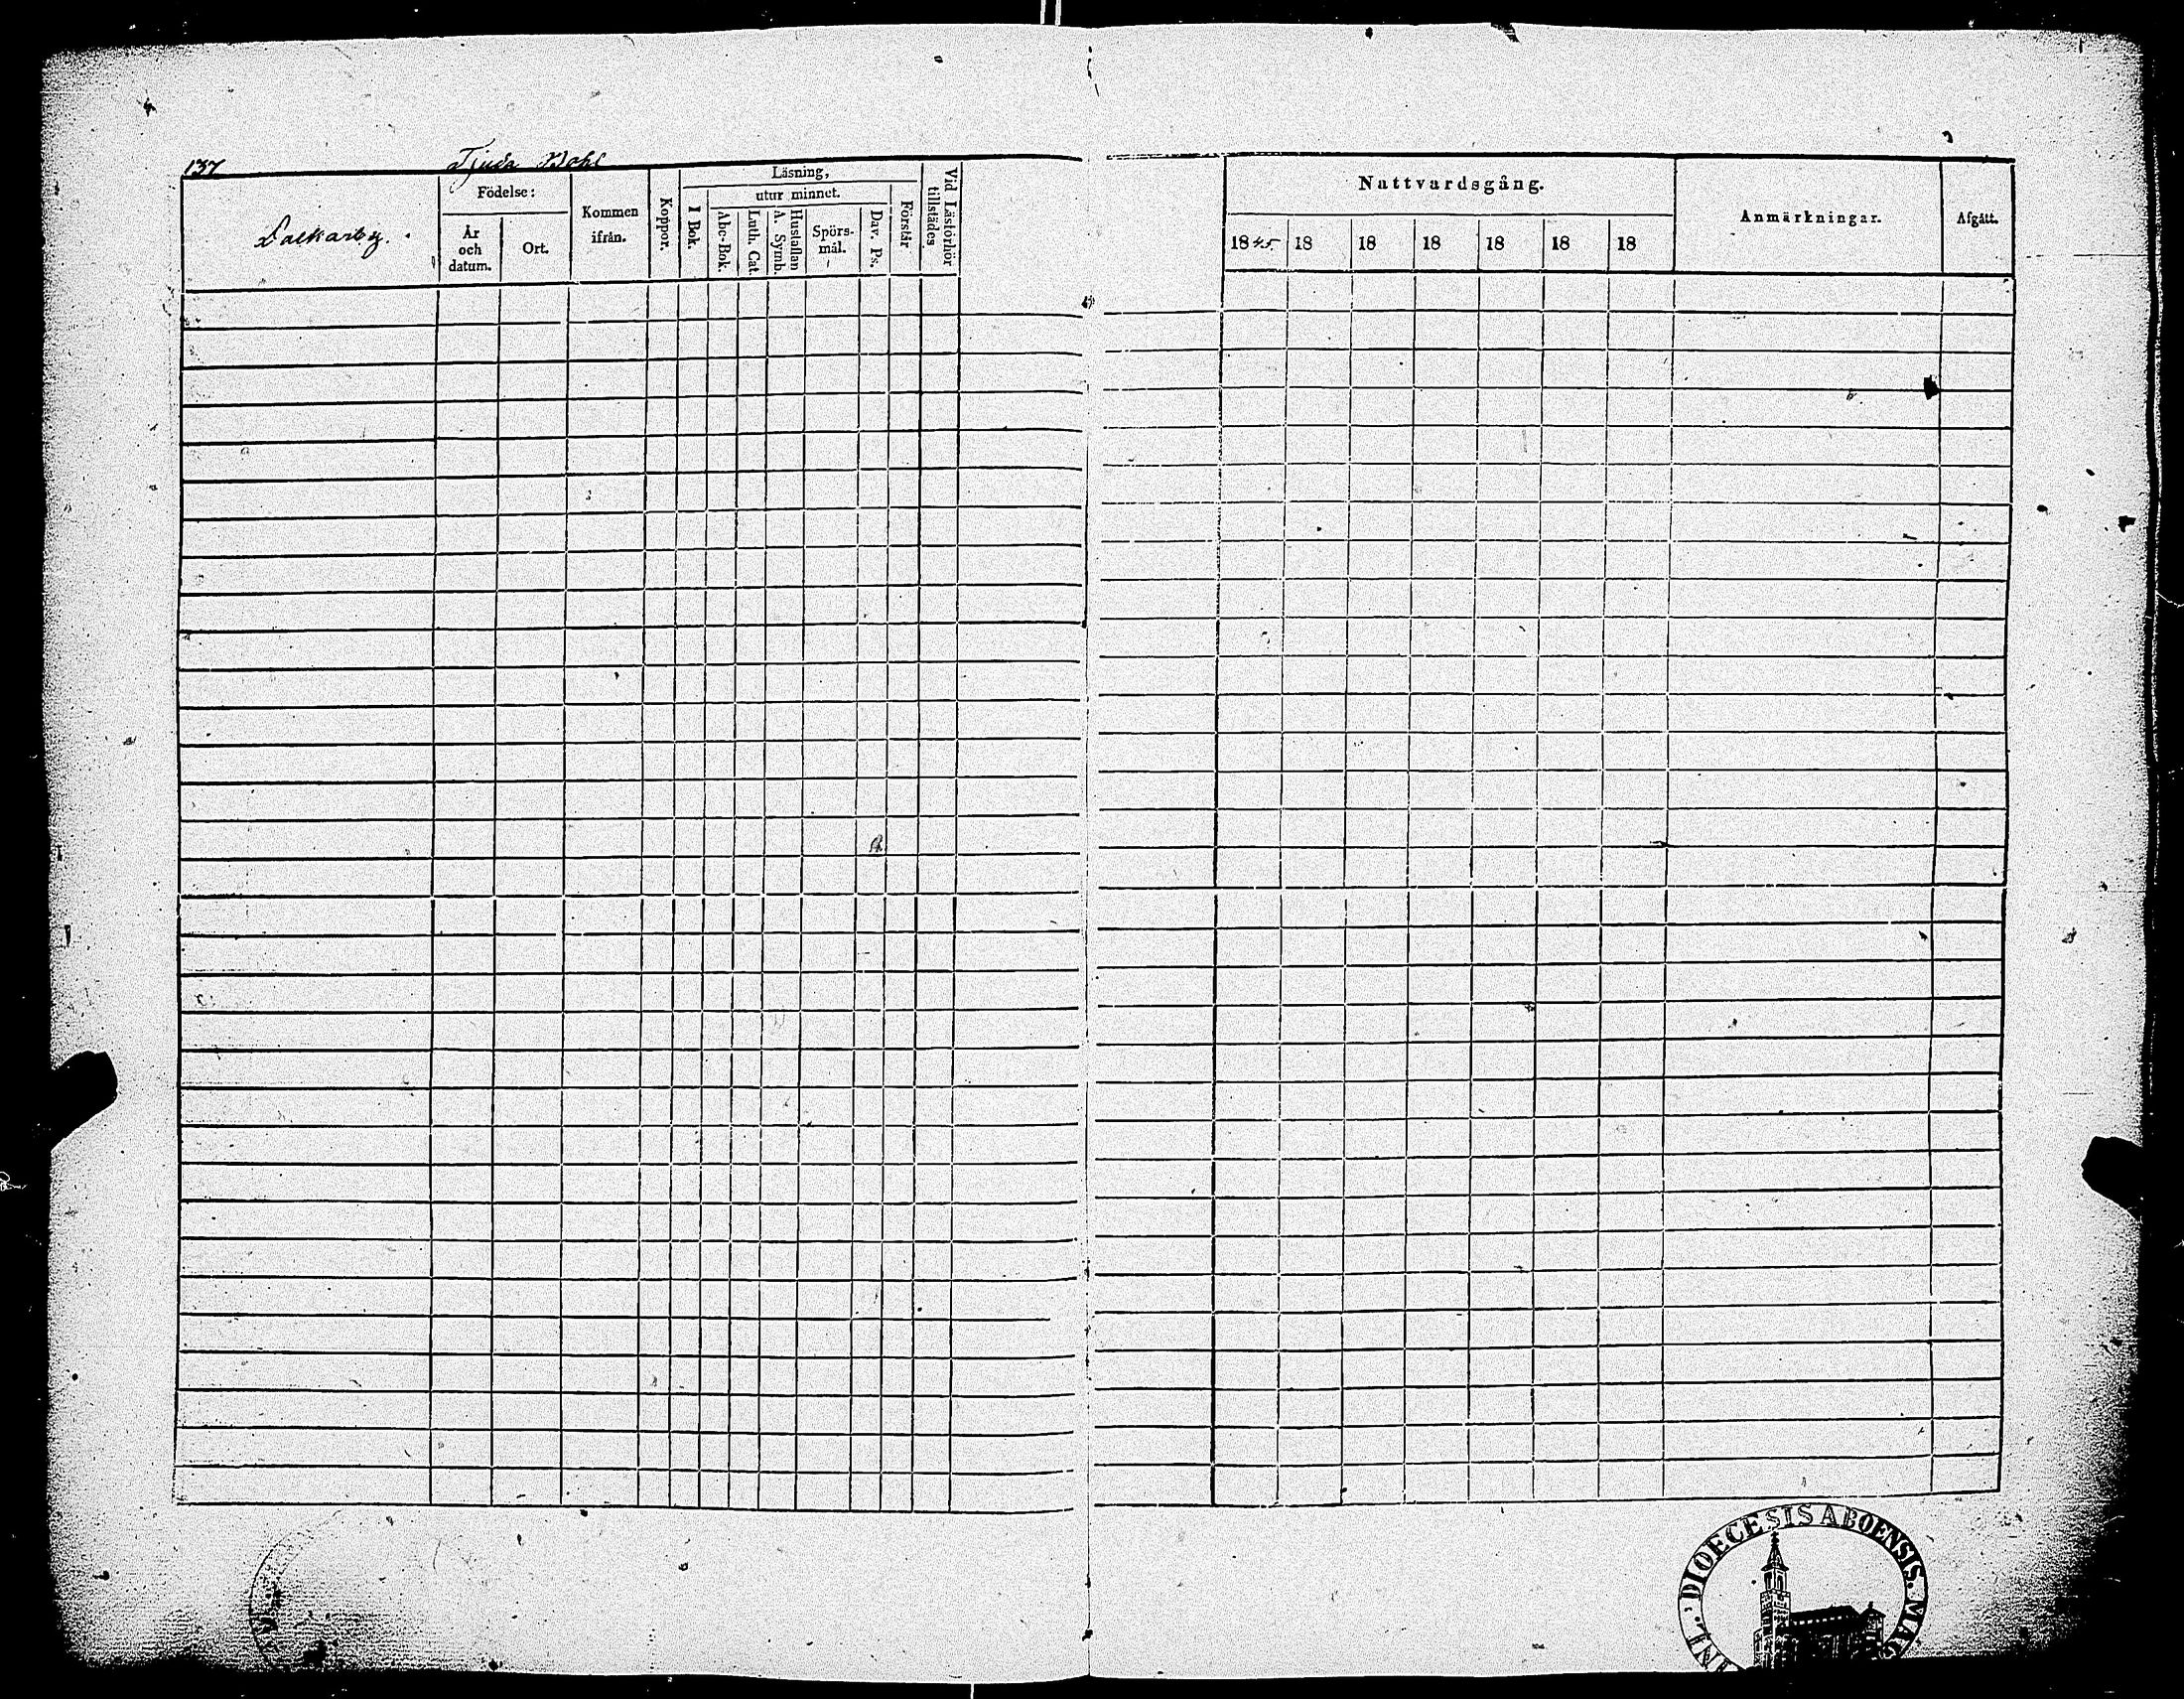 137
Tjuda Bohl
Läsning,
Födelse:
utur minnet.
Kommen
ifrån.
Koppor.
I Bok.
Abc-Bok.
Luth. Cat.
Hustaflan
A. Symb.
Spörs-
mål.
Dav. Ps.
Förstår
Vid Läsförhör
tillstädes
År
och
datum.
Ort.
Nattvardsgång.
Anmärkningar.
Afgått.
1845. 18 18 18 18 18 18
DIOECESIS ABOENSIS. MAG